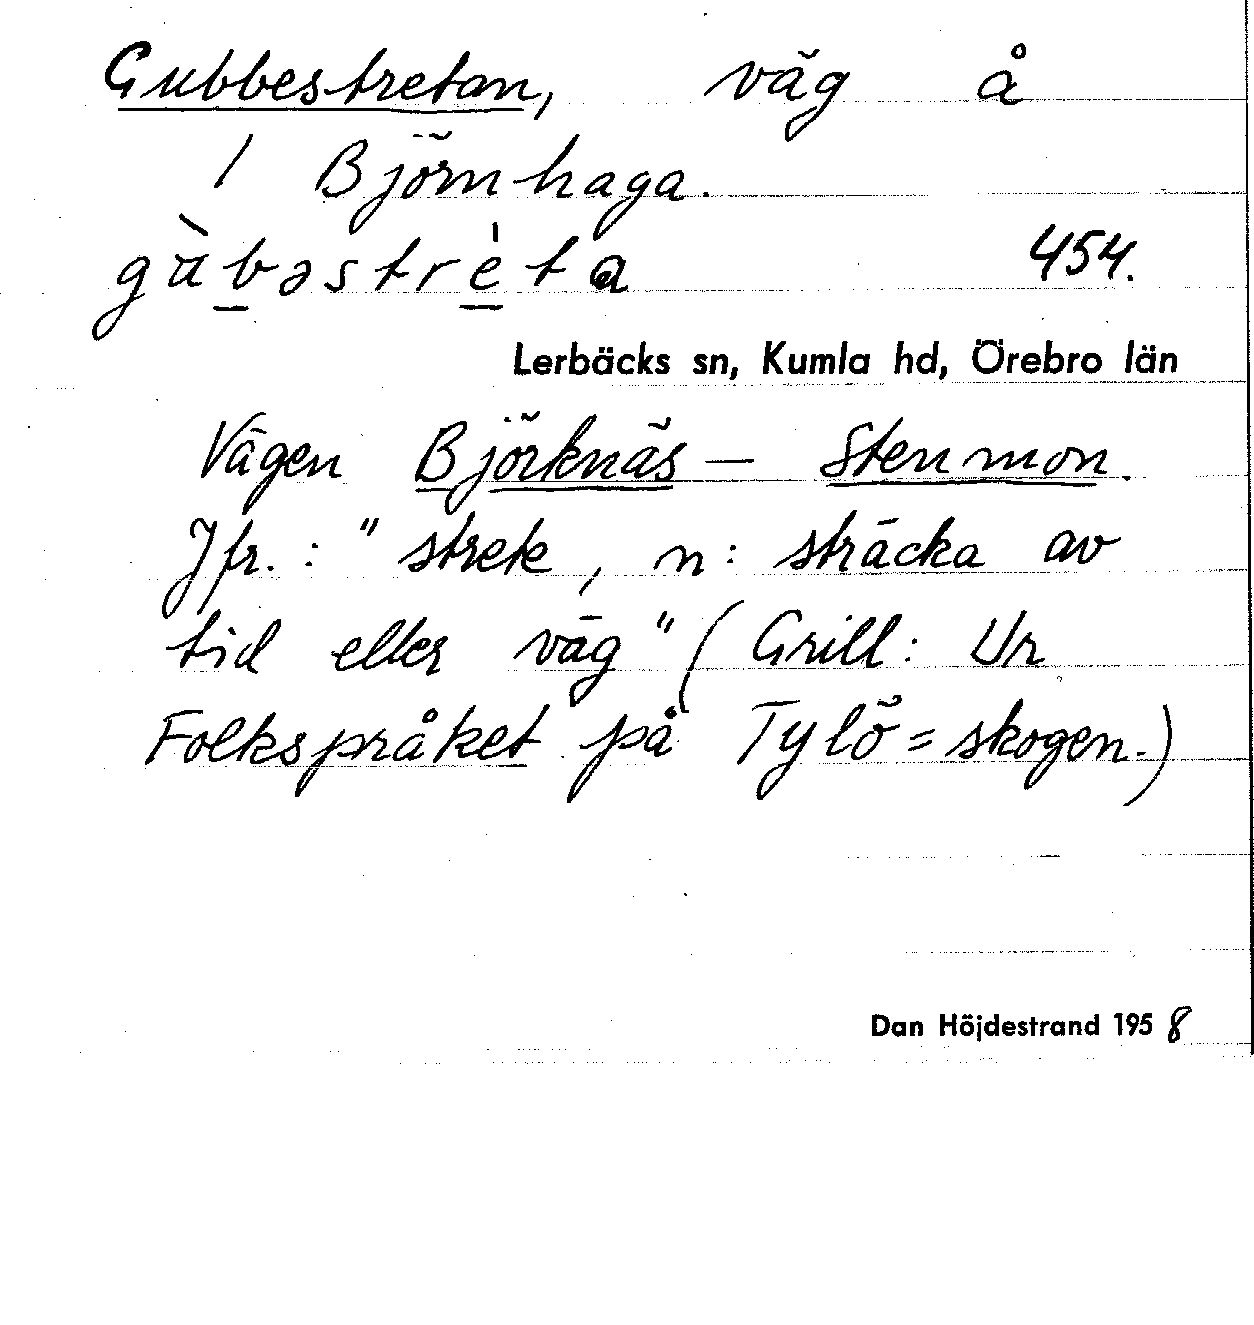 Gubbestretan, väg å
1 Björnhaga.
gùb̲əstrèt̲a
454.
Lerbäcks sn, Kumla hd, Örebro län
Vägen Björknäs — Stenmon.
Jfr.: "strek, n: sträcka av
tid eller väg" (Grill: Ur
Folkspråket på Tylö=skogen.)
Dan Höjdestrand 1958